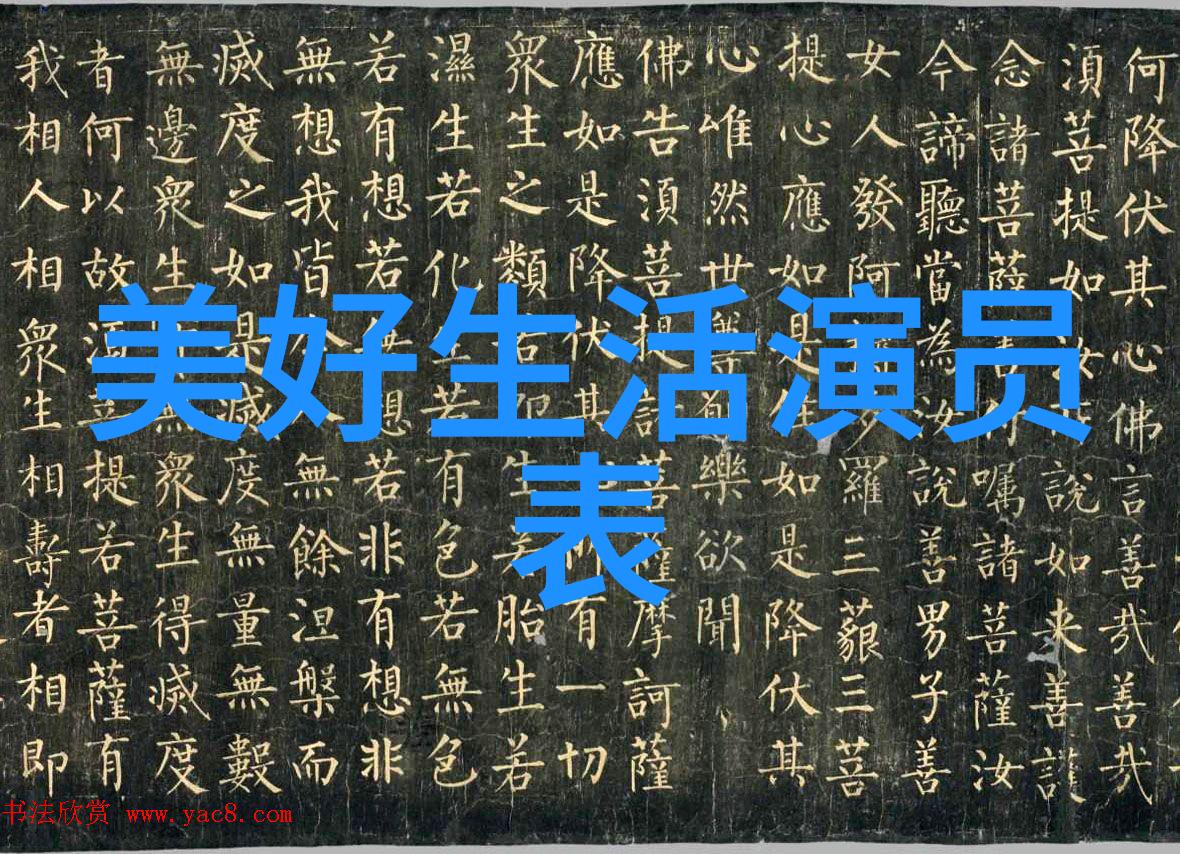 何降伏其心佛言善哉善哉
湏菩提如汝說如来善護
念諸菩薩善付嘱諸菩薩汝
今諦聽當為汝說善男子善
女人發阿多羅三藐三菩
提心應如是住如是降伏其
心唯然世尊願樂欲聞
佛告湏菩提諸菩薩摩訶薩
應如是降伏其有一切
衆生之類若卵生若胎生若
濕生若化生若有色若無色
若有想若無想若非有想非
無想我皆令入無餘涅槃而
滅度之如是滅度無量無數
無邊衆生無衆生得滅度
者何以故湏菩提若菩薩有
我相人相衆生相壽者相即
美好生活演员
表
书法欣赏 www.yac8.com